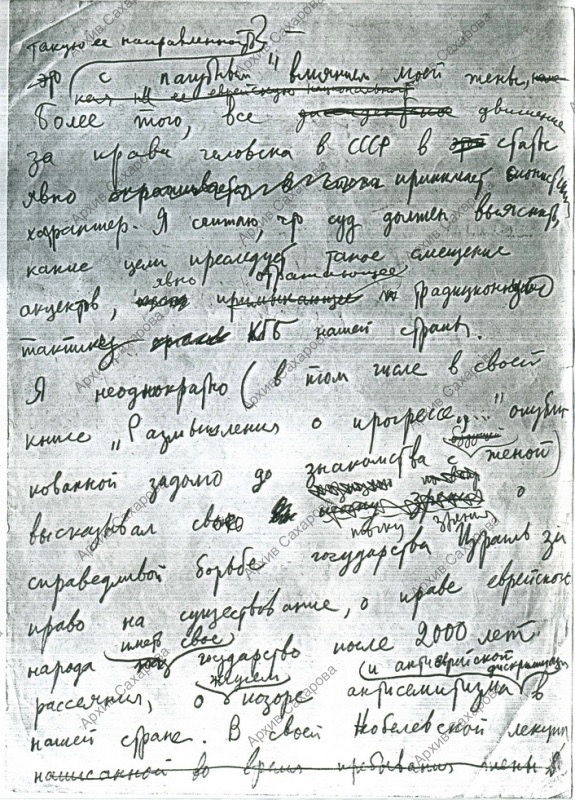 такую ее направленность —
с пагубным влиянием моей жены,
ее еврейскую национальность
Более того, все диссидентское движение
за права человека в СССР в этой статье
явно окрашивается в принимает сионистский
характер. Я считаю, что суд должен выяснить,
какие цели преследует такое смещение
явно отражающее
акцентов, примыкающее традиционной
тактике КГБ нашей страны.
Я неоднократно (в том числе в своей
книге „Размышления о прогрессе..." опубли
будущей
кованной задолго до знакомства с женой)
высказывал свою о
точку зрения
справедливой борьбе государства Израиль за
право на существование, о праве еврейского
иметь свое
народа государство после 2000 лет
жгучем и антиеврейской дискриминации
рассеяния, о позоре антисемитизма в
нашей стране. В своей Нобелевской лекции
написанной во время пребывания жены в
Архив Сахарова